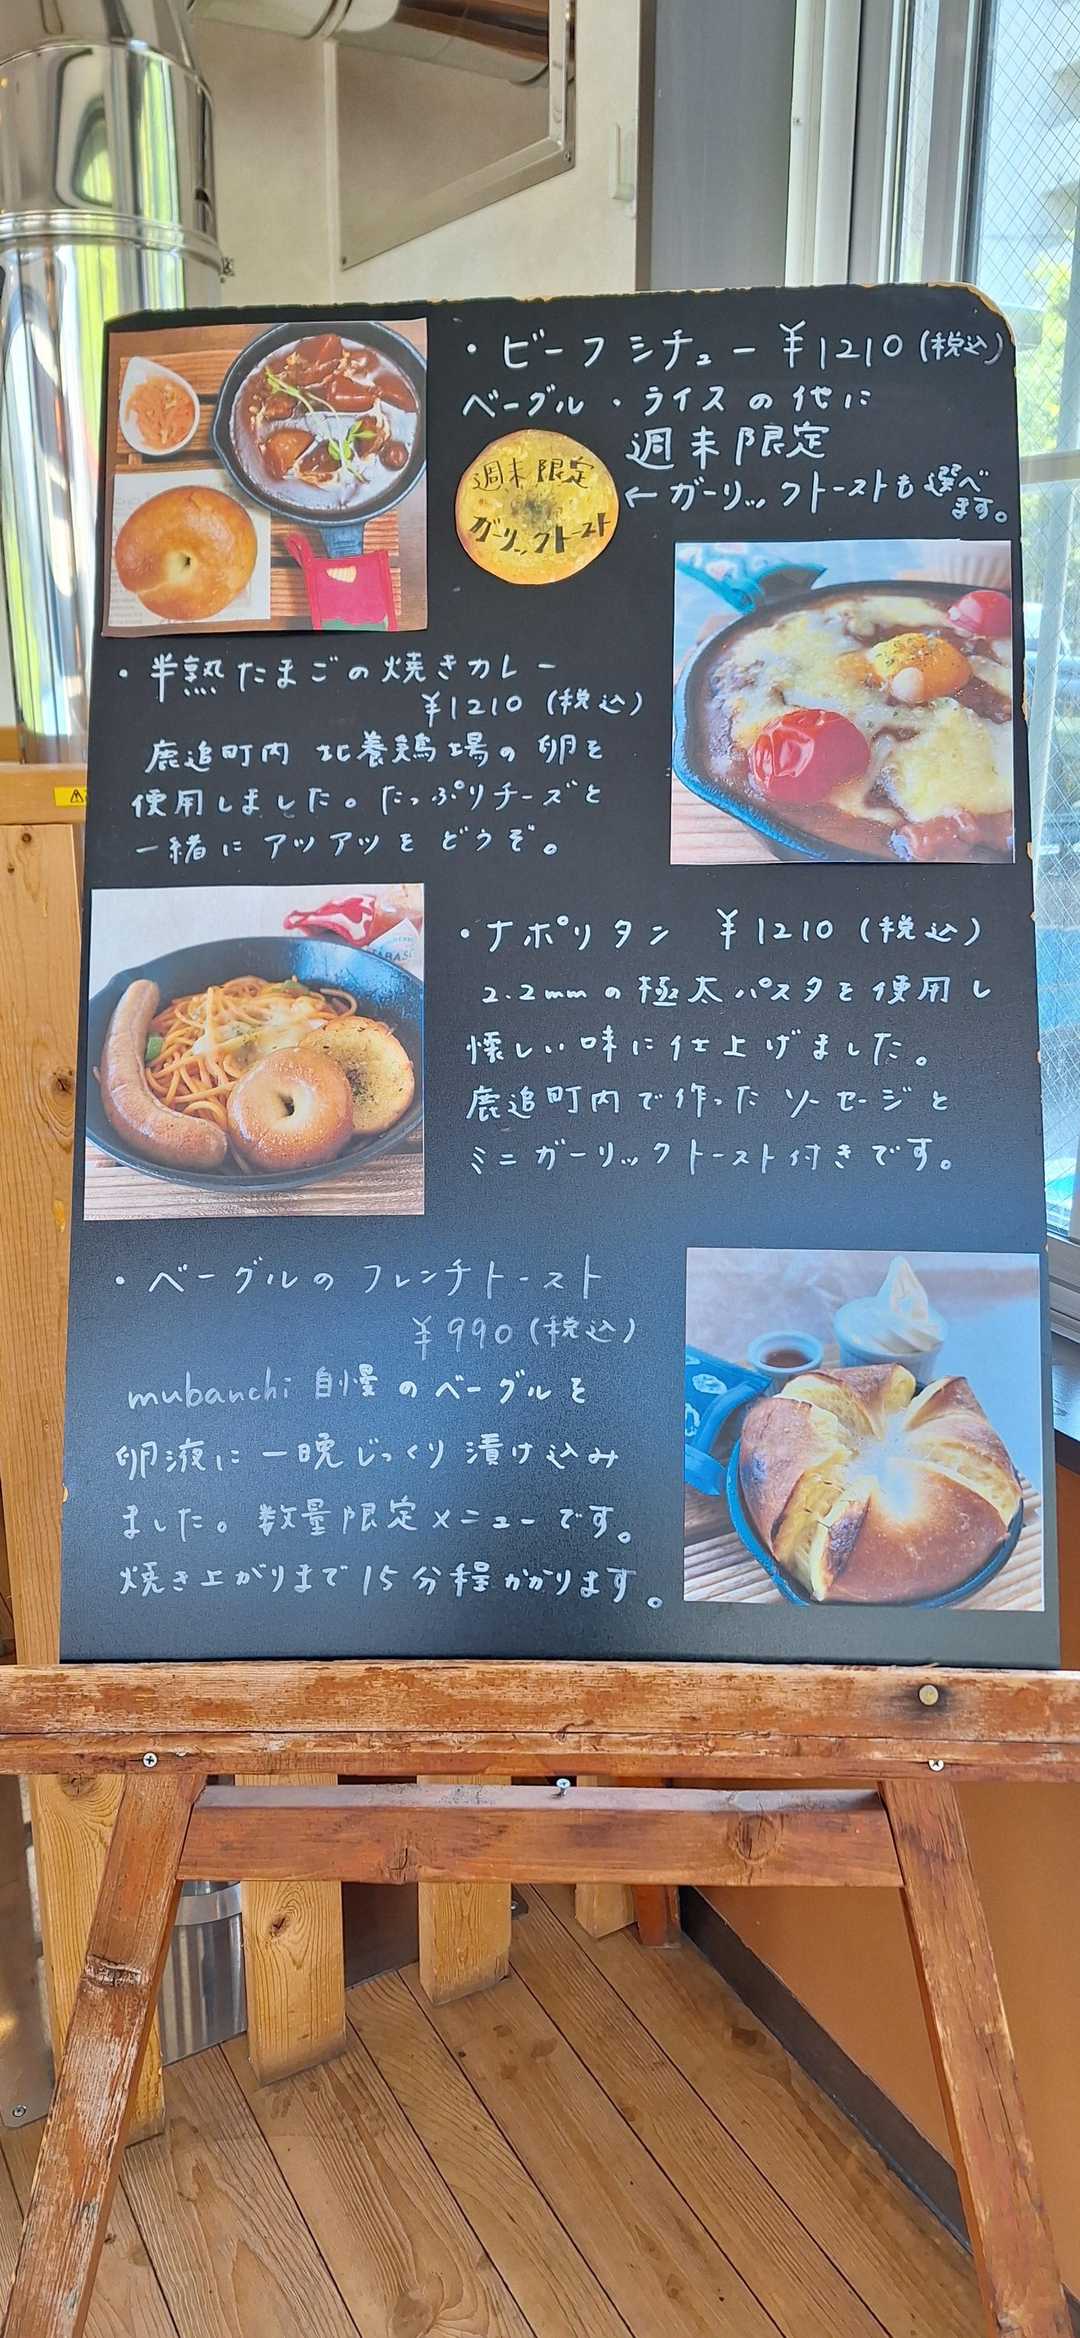 ・ビーフシチュー ￥1210(税込)
ベーグル・ライスの代に
週末限定
←ガーリックトーストも選べ
ます。
週末限定
ガーリックトースト
・半熟たまごの焼きカレー
￥1210(税込)
鹿追町内 北養鶏場の卵を
使用しました。たっぷりチーズと
一緒にアツアツをどうぞ。
・ナポリタン ￥1210(税込)
2.2mmの極太パスタを使用し
懐しい味に仕上げました。
鹿追町内で作ったソーセージと
ミニガーリックトースト付きです。
・ベーグルのフレンチトースト
￥990(税込)
mubanchi 自慢のベーグルを
卵液に一晩じっくり漬け込み
ました。数量限定メニューです。
焼き上がりまで15分程かかります。